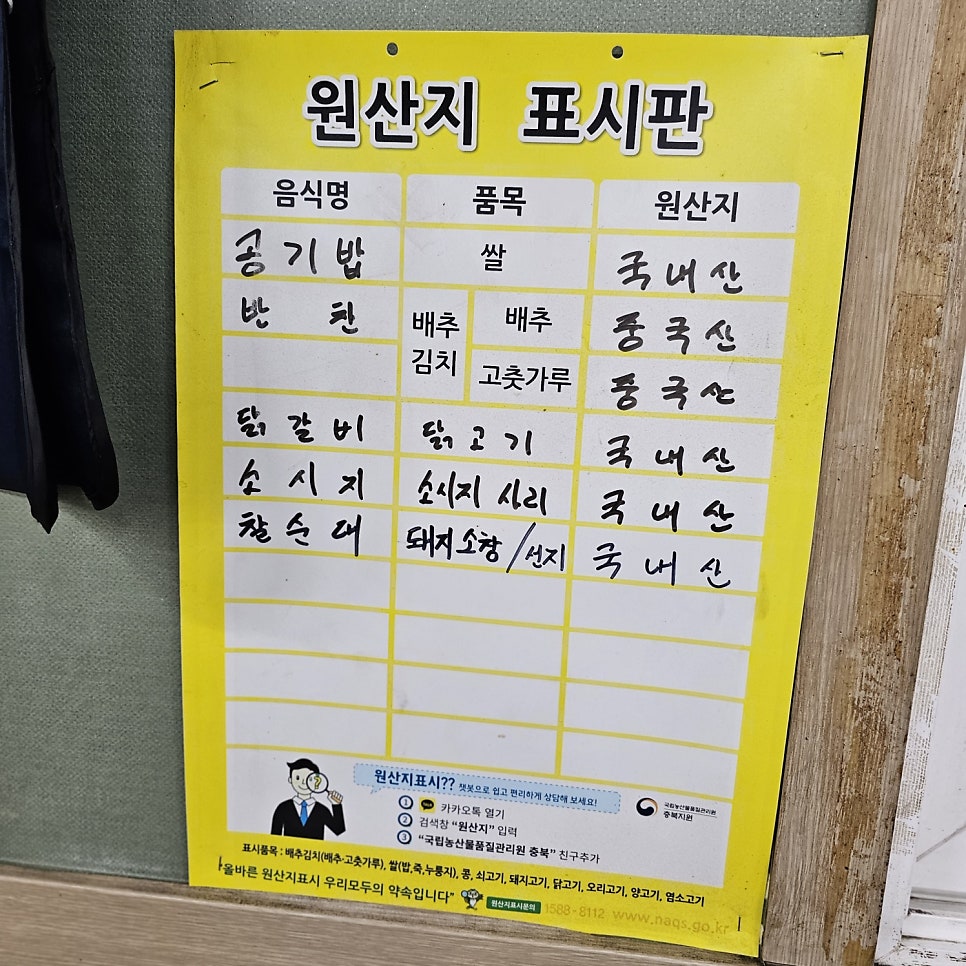 원산지 표시판
음식명 품목 원산지
공기밥 쌀 국내산
반찬 배추김치 배추 중국산
고춧가루 중국산
닭갈비 닭고기 국내산
소시지 소시지 사리 국내산
찰순대 돼지소창/선지 국내산
원산지표시?? 챗봇으로 쉽고 편리하게 상담해 보세요!
1 카카오톡 열기
2 검색창 "원산지" 입력
3 "국립농산물품질관리원 충북" 친구추가
국립농산물품질관리원
충북지원
표시품목 : 배추김치(배추·고춧가루), 쌀(밥,죽,누룽지), 콩, 쇠고기, 돼지고기, 닭고기, 오리고기, 양고기, 염소고기
"올바른 원산지표시 우리모두의 약속입니다" 원산지표시문의 1588-8112 www.naqs.go.kr